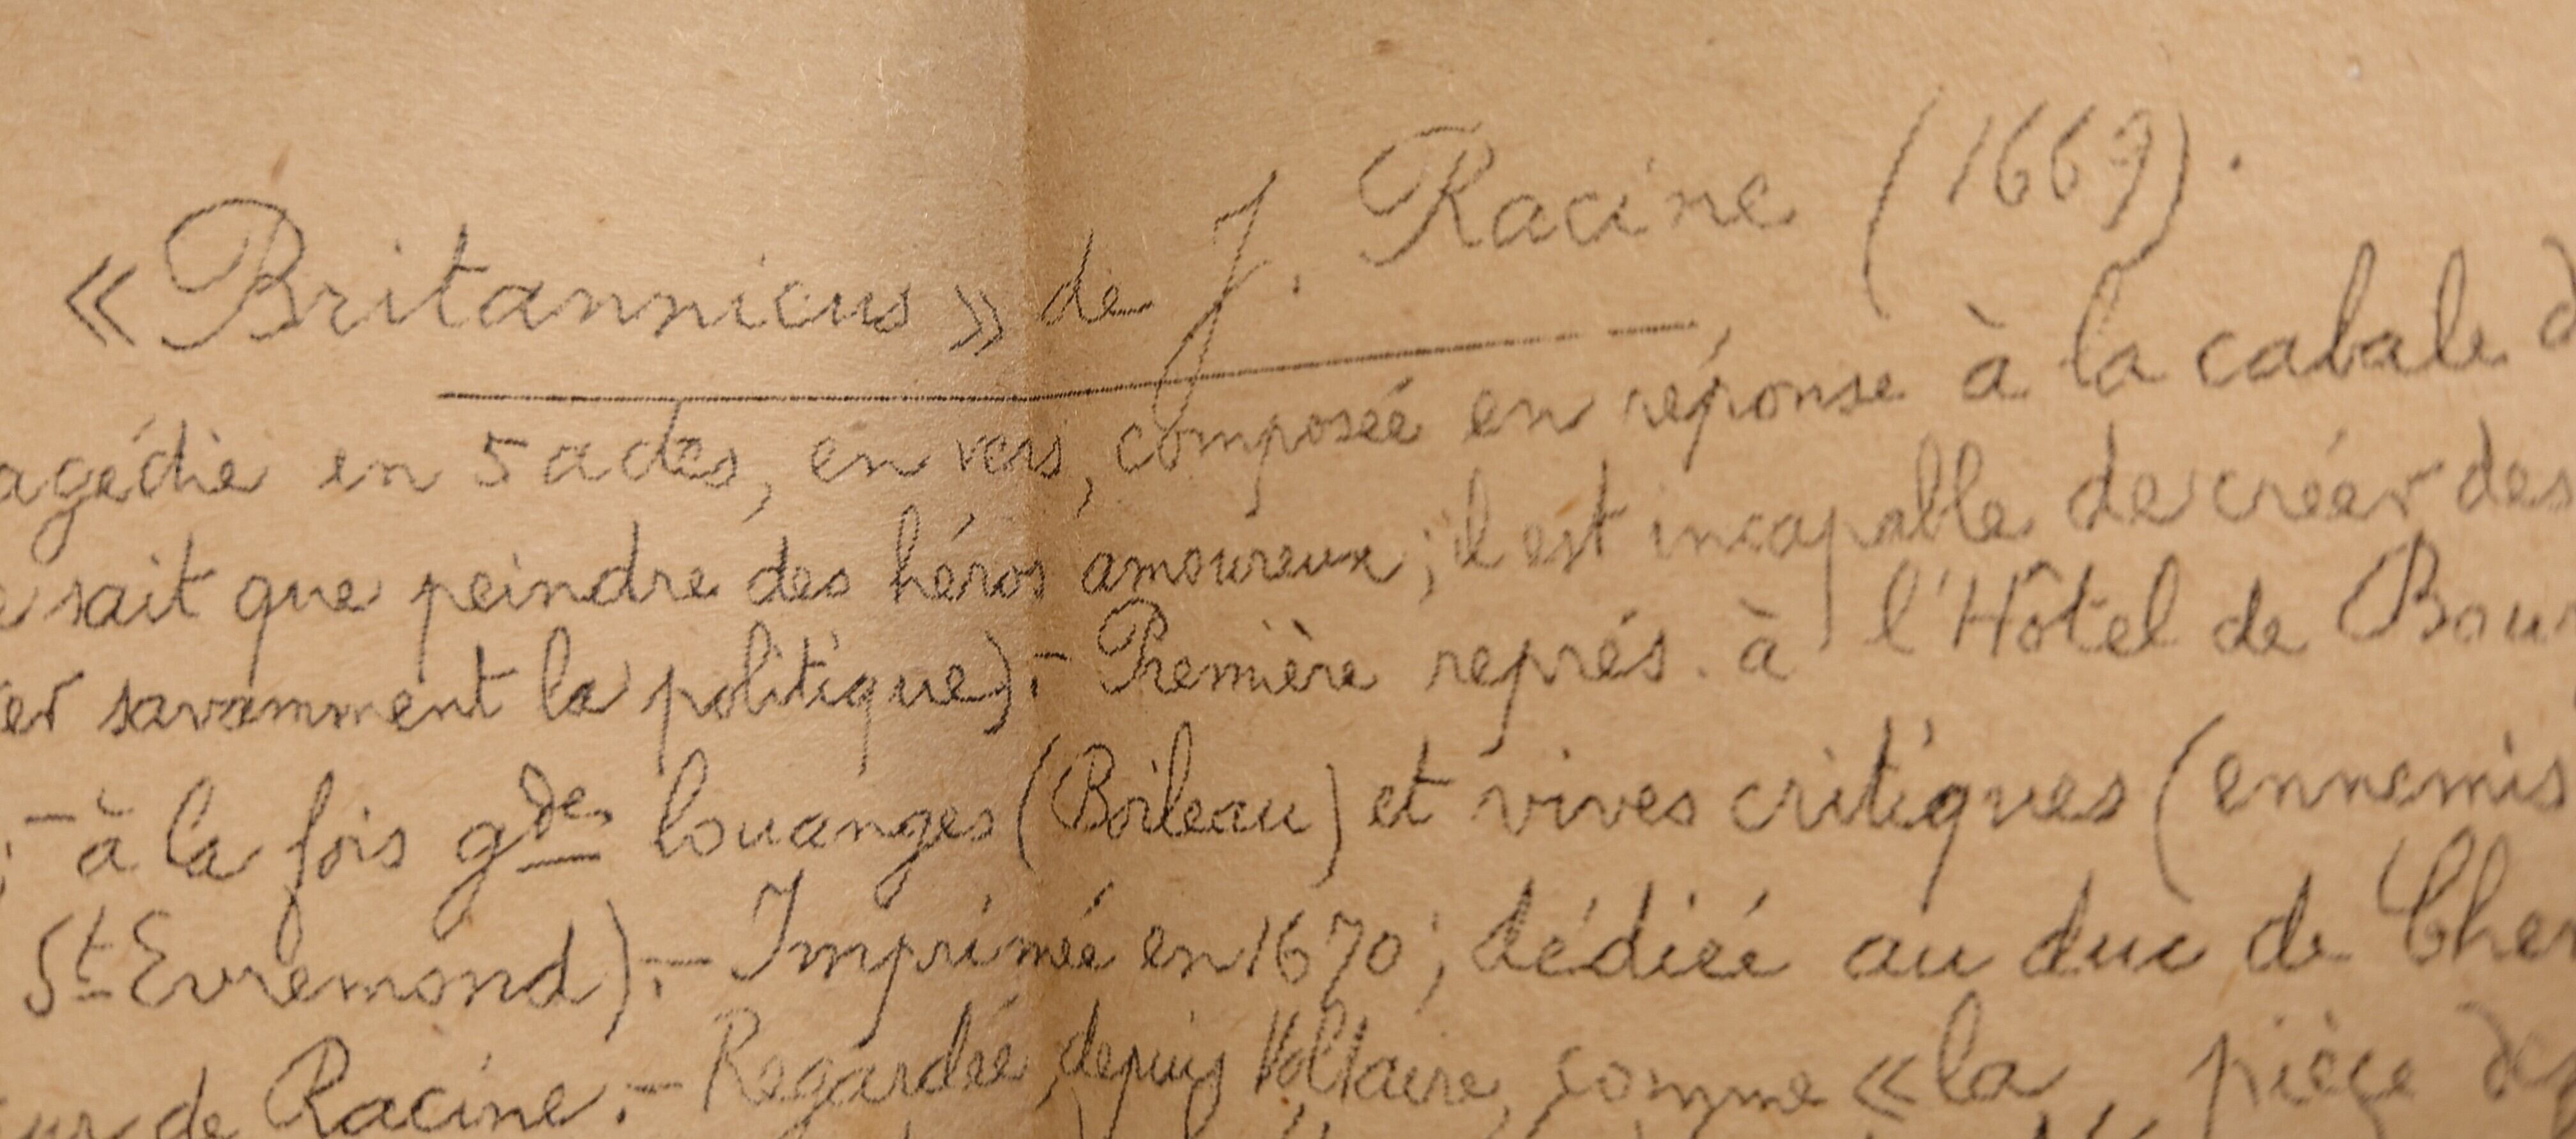 « Britannicus » de J. Racine (1669).
agédie en 5 actes, en vers, composée en réponse à la cabale d
e sait que peindre des héros amoureux ; il est incapable de créer des
er savamment la politique). – Première représ. à l'Hôtel de Bour
; – à la fois gdes louanges (Boileau) et vives critiques (ennemis
St Evremond). – Imprimée en 1670 ; dédiée au duc de Chev
ur de Racine. – Regardée, depuis Voltaire, comme « la pièce des